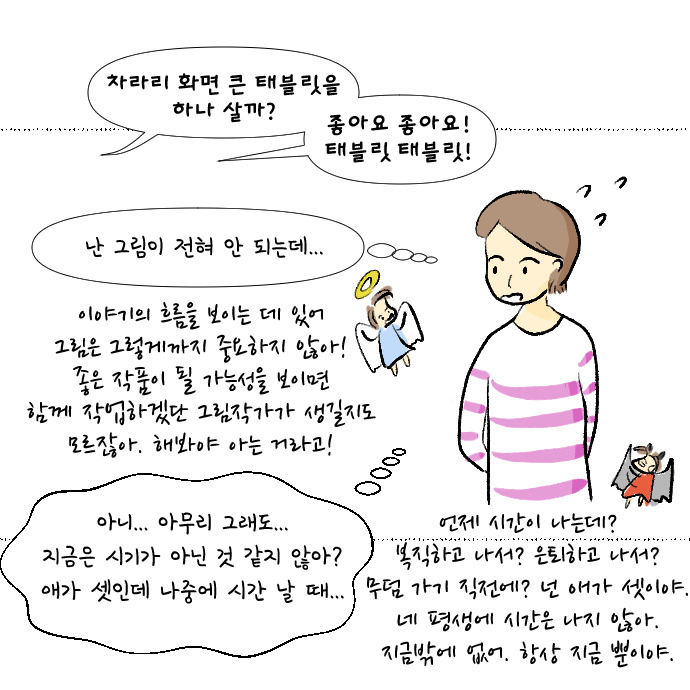 차라리 화면 큰 태블릿을
하나 살까?
좋아요 좋아요!
태블릿 태블릿!
난 그림이 전혀 안 되는데...
이야기의 흐름을 보이는 데 있어
그림은 그렇게까지 중요하지 않아!
좋은 작품이 될 가능성을 보이면
함께 작업하겠단 그림작가가 생길지도
모르잖아. 해봐야 아는 거라고!
아니... 아무리 그래도...
지금은 시기가 아닌 것 같지 않아?
애가 셋인데 나중에 시간 날 때...
언제 시간이 나는데?
복직하고 나서? 은퇴하고 나서?
무덤 가기 직전에? 넌 애가 셋이야.
네 평생에 시간은 나지 않아.
지금밖에 없어. 항상 지금 뿐이야.